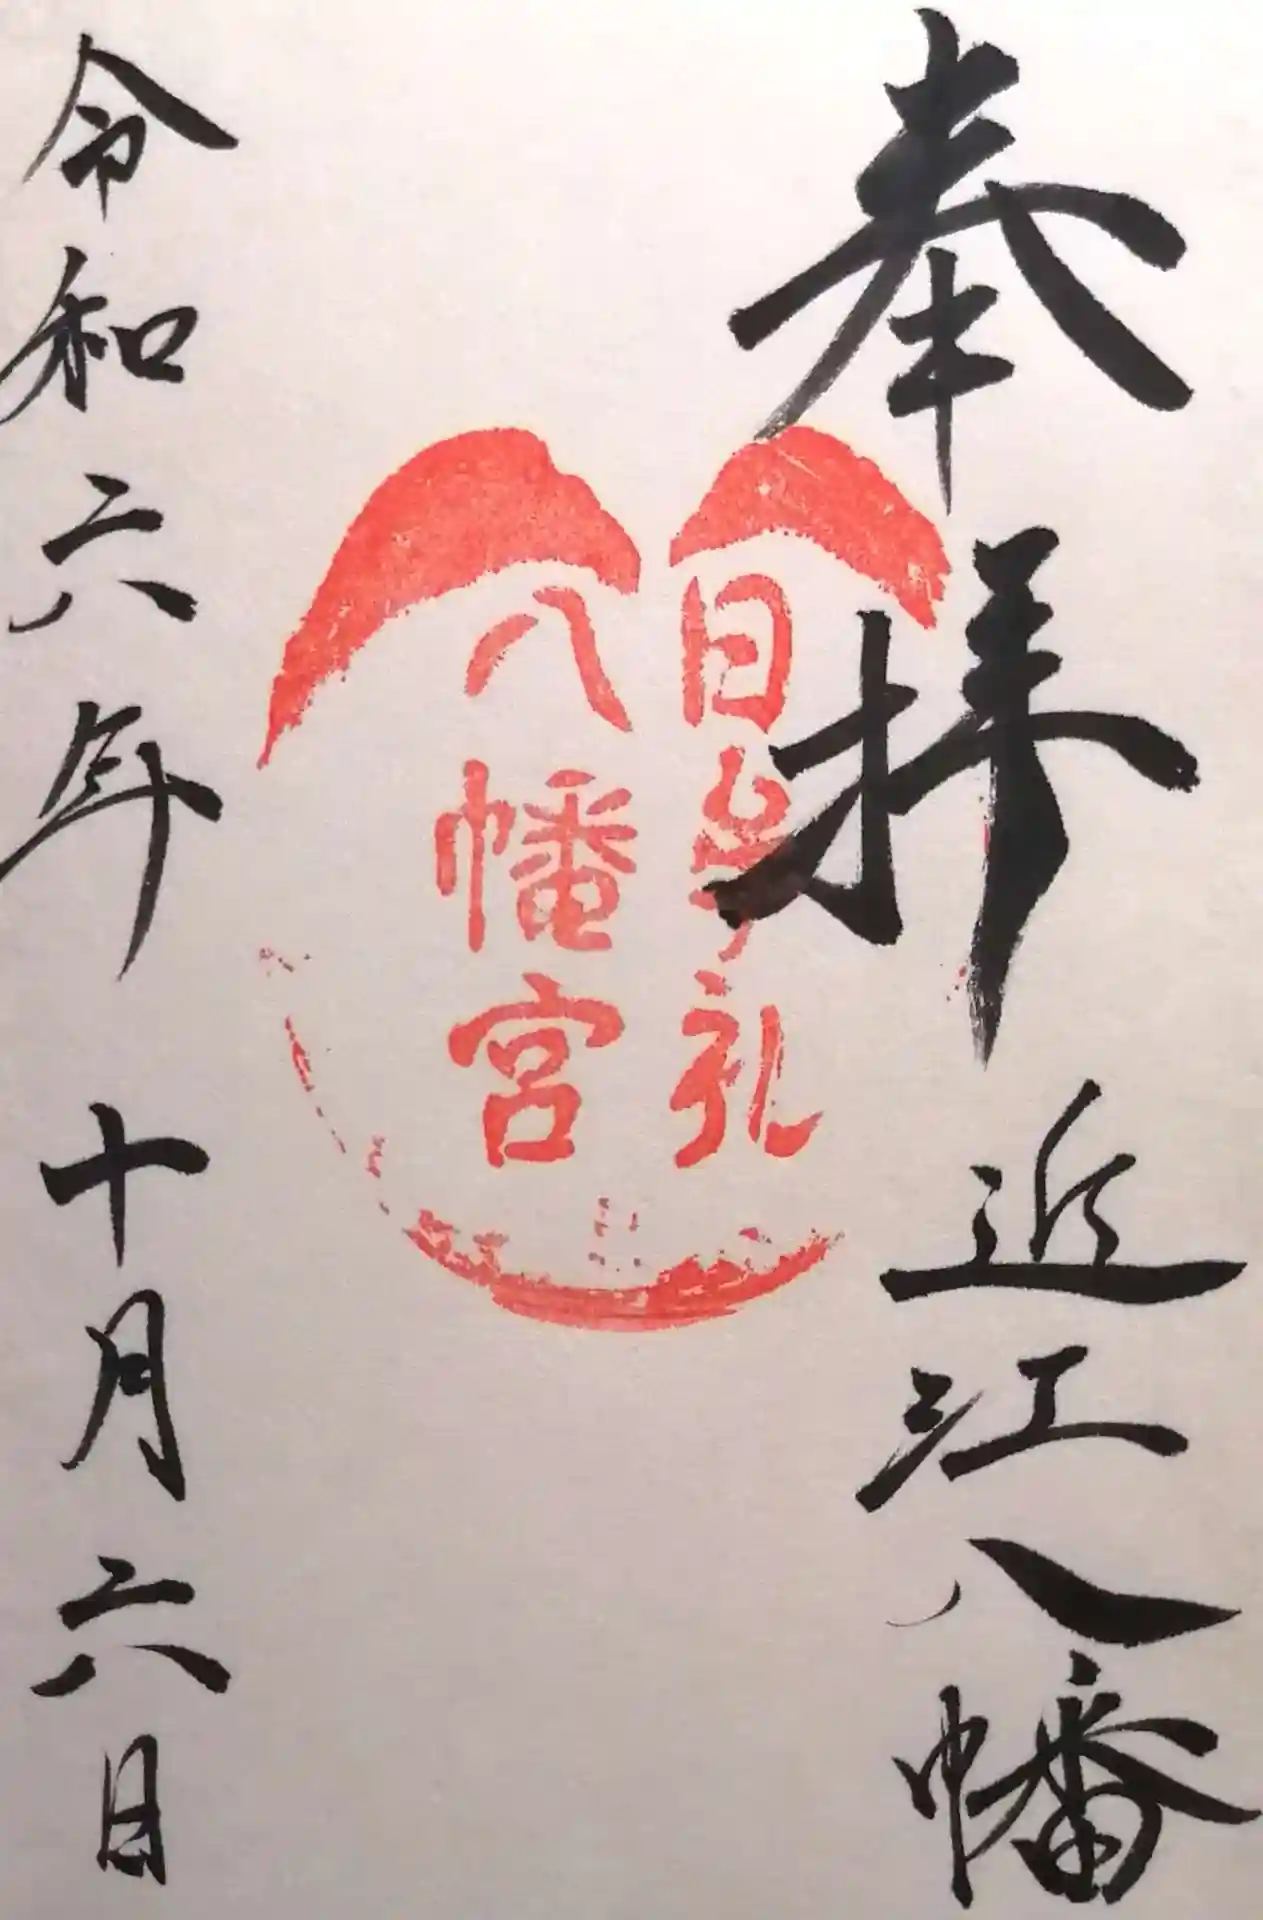 奉拝 近江八幡
日牟礼
八幡宮
令和六年 十月六日